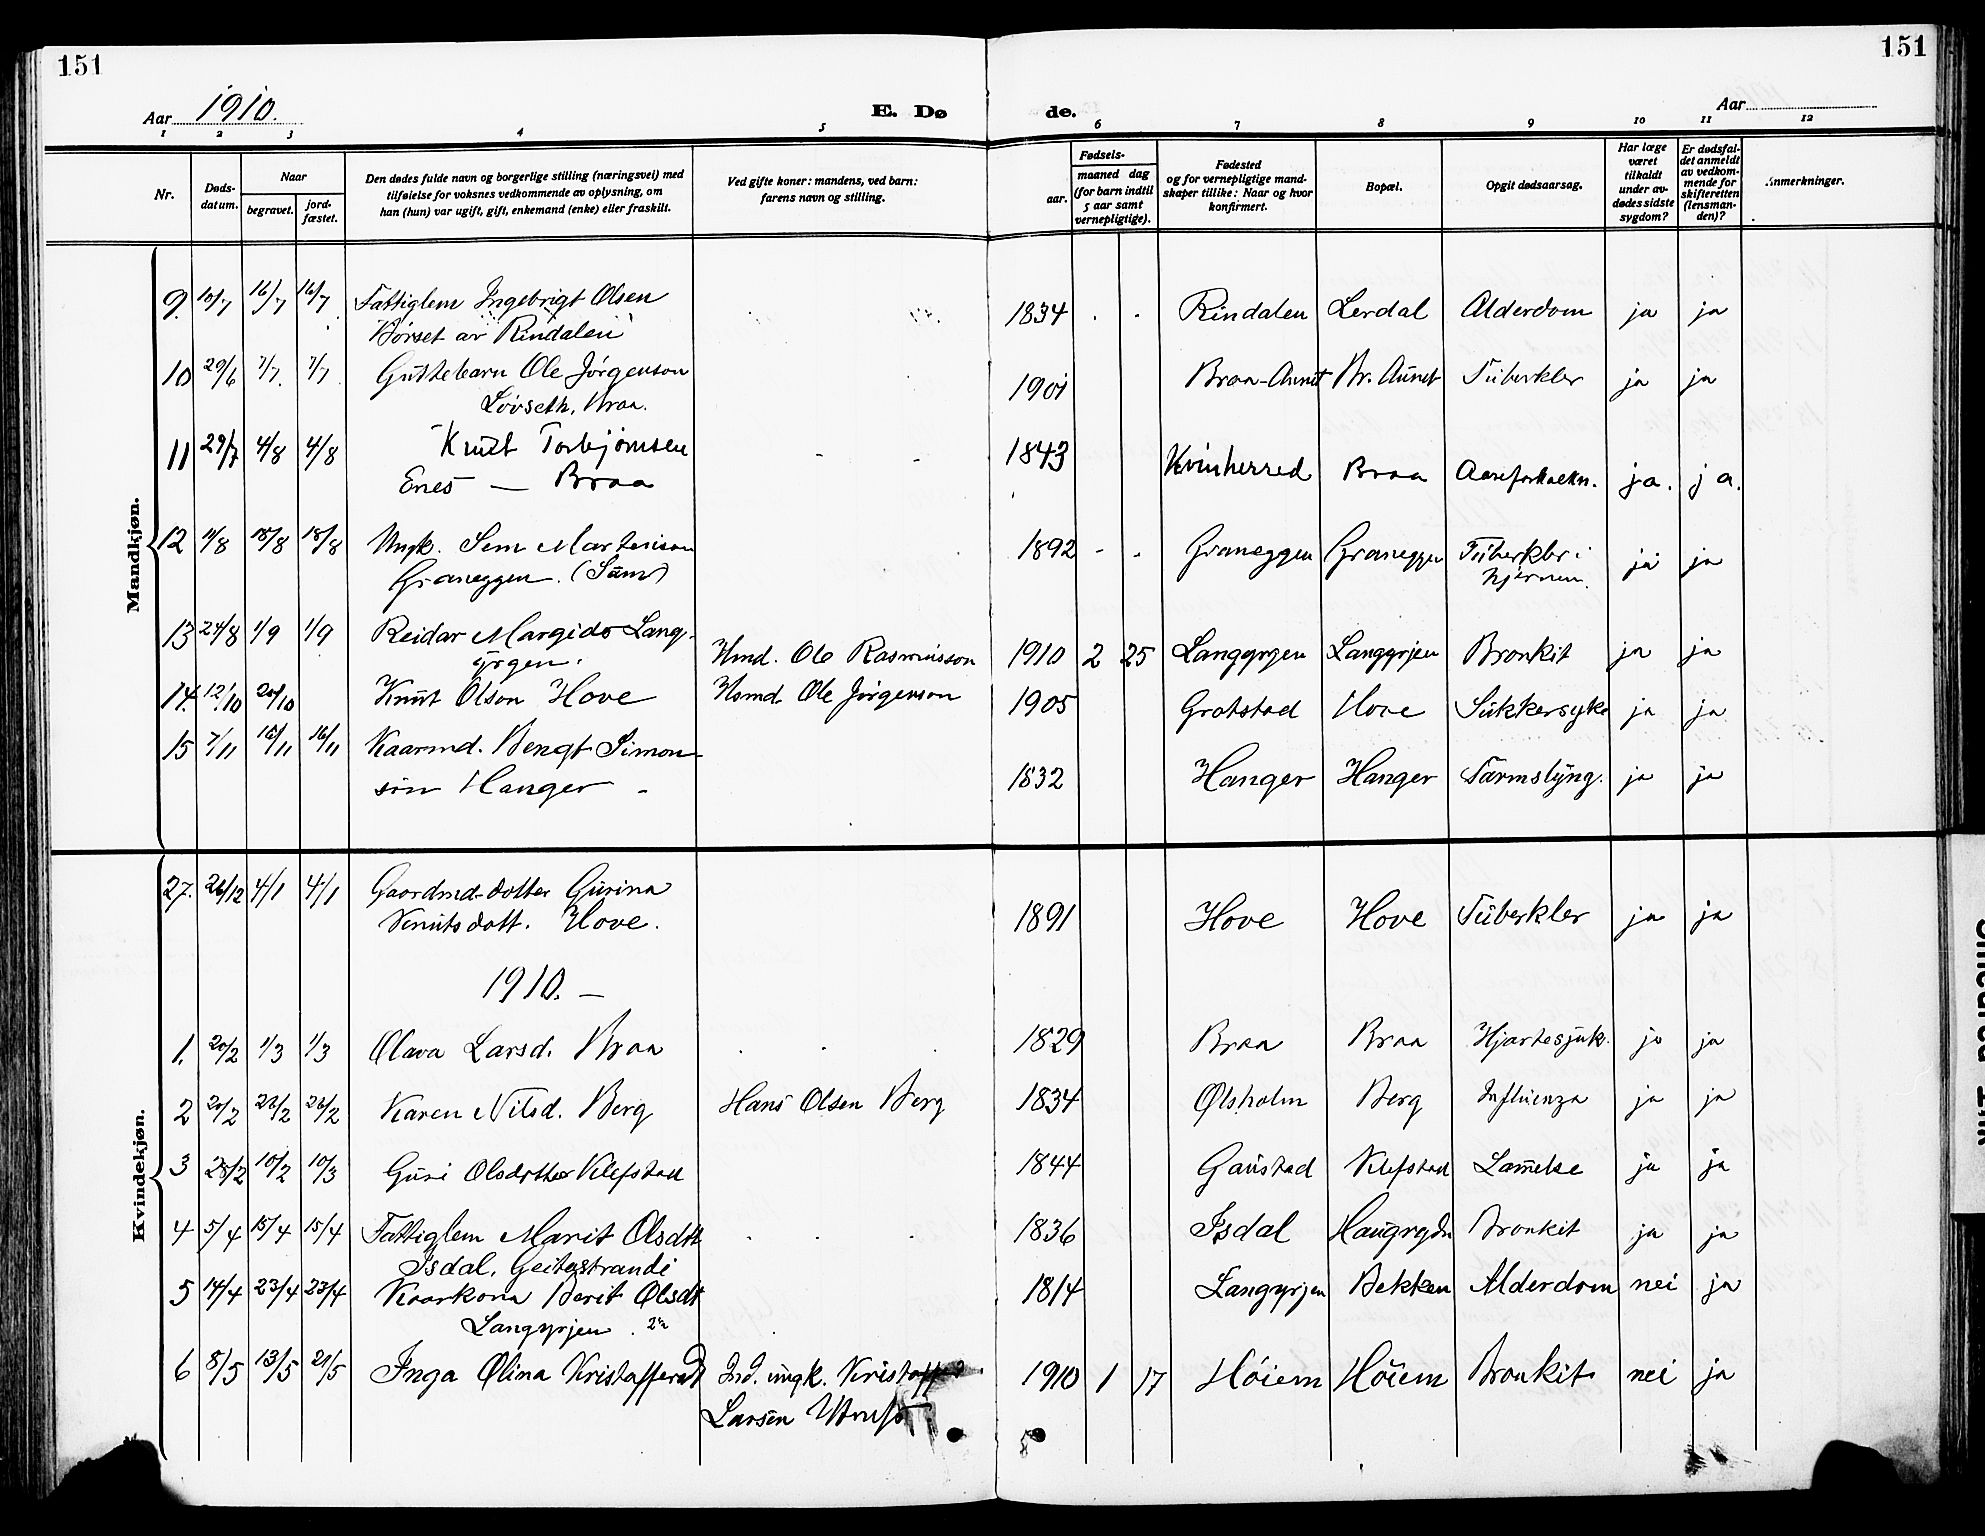 151
151
Aar 1910.
E. Dø de.
Aar
1 2 3 4 5 6 7 8 9 10 11 12
Nr.
Døds-
datum.
Naar
begravet.
jord-
fæstet.
Den dødes fulde navn og borgerlige stilling (næringsvei) med
tilføielse for voksnes vedkommende av oplysning, om
han (hun) var ugift, gift, enkemand (enke) eller fraskilt.
Ved gifte koner: mandens, ved barn:
farens navn og stilling.
Fødsels-
aar.
maaned dag
(for barn indtil
5 aar samt
vernepligtige).
Fødested
og for vernepligtige mand-
skaper tillike: Naar og hvor
konfirmert.
Bopæl.
Opgit dødsaarsag.
Har læge
været
tilkaldt
under av-
dødes sidste
sygdom?
Er dødsfal-
det anmeldt
av vedkom-
mende for
skifteretten
(lensman-
den)?
Anmerkninger.
Mandkjøn.
9. 10/7 16/7 16/7 Fattiglem Ingebrigt Olsen
Børset av Rindalen 1834 Rindalen Lerdal Alderdom ja ja
10 29/6 7/7 7/7 Guttebarn Ole Jörgenson
Lövseth, Braa. 1901 Braa-Aunet Br. Aunet Tuberkler ja ja
11 29/7 4/8 4/8 Knut Torbjørnsen
Enes — Braa 1843 Kvinherred Braa ja. ja.
12 11/8 18/8 18/8 Ungk. Sem Martenson
Graneggen. 1892 Graneggen Graneggen Tuberkler i
hjernen. ja ja
13 24/8 1/9 1/9 Reidar Margido Lang-
örgen. Hmd. Ole Rasmusson 1910 2 25 Langørgen Langørjen Bronkit ja ja
14. 12/10 20/10 Knut Olson Hove Hsmd. Ole Jörgenson 1905 Grotstad Hove Sukkersyke ja ja
15 7/11 16/11 16/11 Kaarmd. Bengt Simon-
son Hanger 1832 Hanger Hanger Tarmslyng. ja ja
Kvindekjøn.
27. 26/12 4/1 4/1 Gaardmd-dotter Gurina
Knutsdott. Hove. 1891 Hove Hove Tuberkler ja ja
1910. —
1. 20/2 1/3 1/3 Olava Larsd. Braa 1829 Braa Braa Hjartesjuk. ja ja
2 20/2 26/2 26/2 Karen Nilsd. Berg Hans Olsen Berg 1834 Ølsholm Berg Influenza ja ja
3 28/2 10/2 10/3 Guri Olsdotter Klefstad 1844 Gaustad Klefstad Lamelse ja ja
4 5/4 15/4 15/4 Fattiglem Marit Olsdtt
Isdal, Geitastrandi 1836 Isdal Haugrydn Bronkit ja ja
5 14/4 23/4 23/4 Kaarkona Berit Olsdt
Langyrjen. 1814 Langyrjen Bekken Alderdom nei ja
6 8/5 13/5 21/5 Inga Ølina Kristoffersdt Ind. ungk. Kristoffer
Larsen 1910 1 17 Höiem Höiem Bronkit nei ja